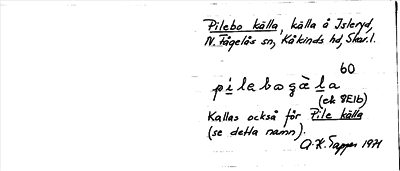 Pilebo källa, källa å Isleryd,
N. Fågelås sn, Kåkinds hd, Skar. l.
60
pilebogäla
(ek 8E1b)
Kallas också för Pile källa
(se detta namn).
1971